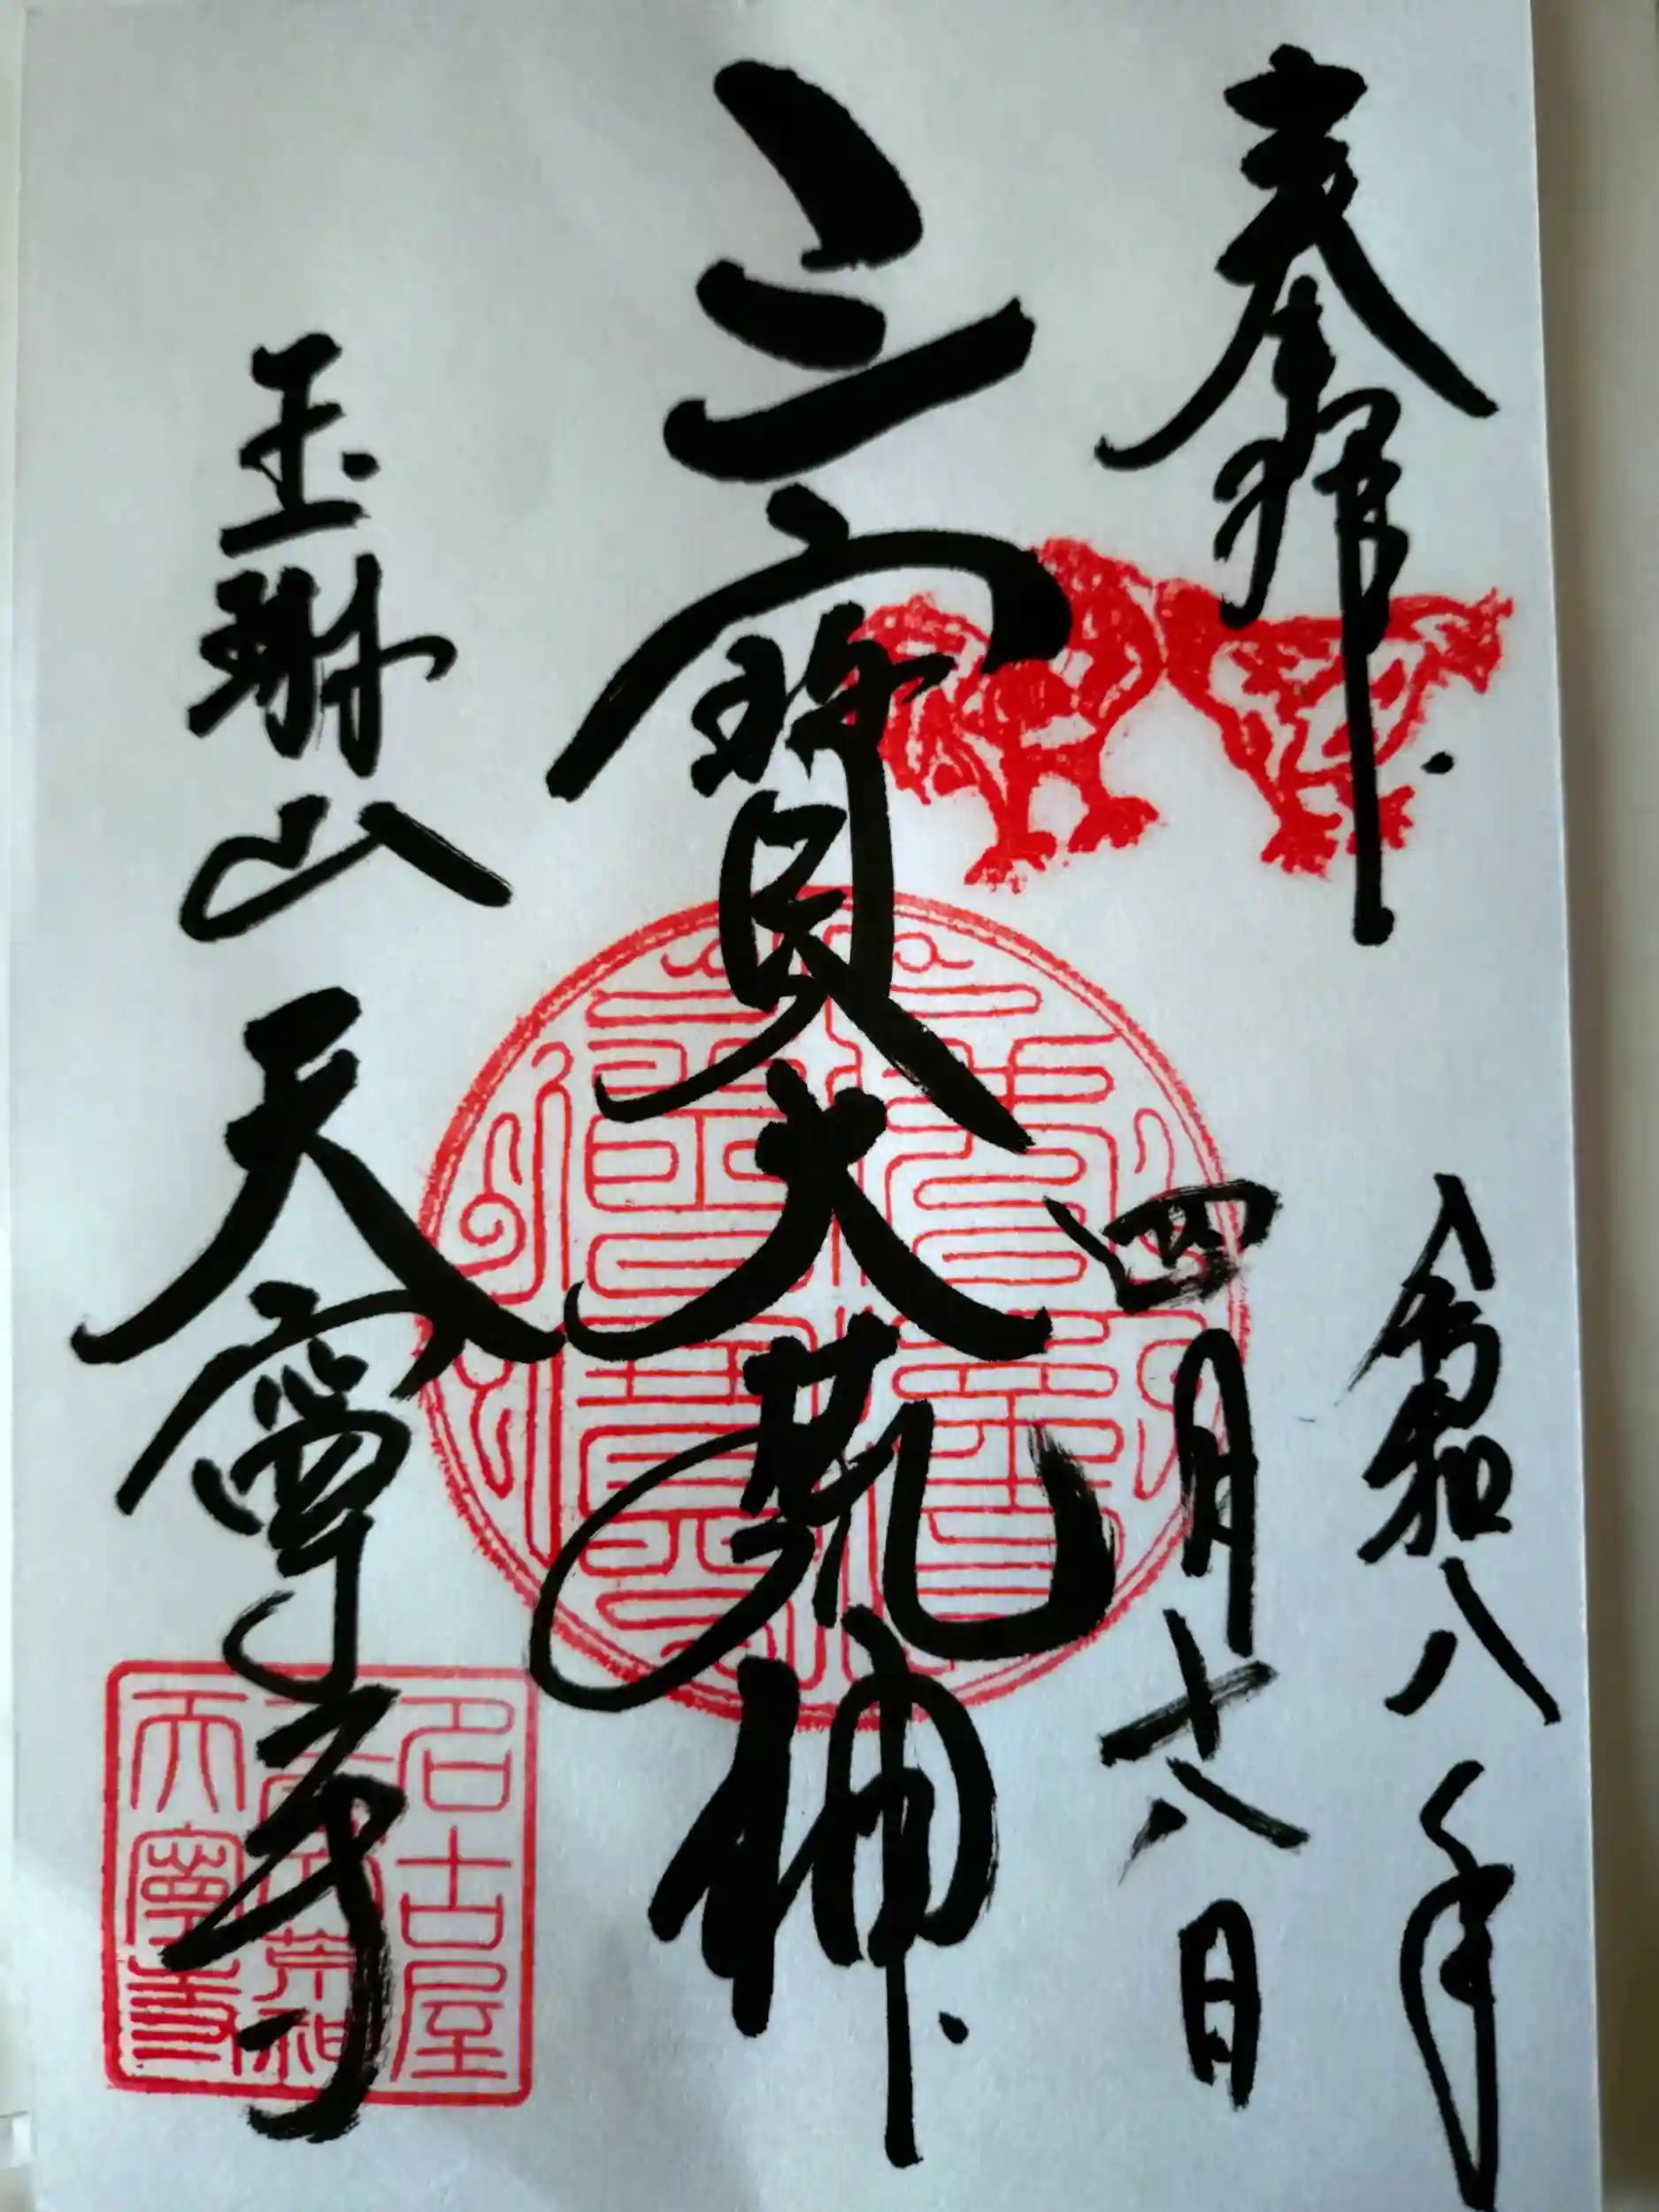 奉拝
令和八年
四月十八日
三寳大荒神
玉琳山
天寧寺
名古屋
三寳荒神
天寧寺